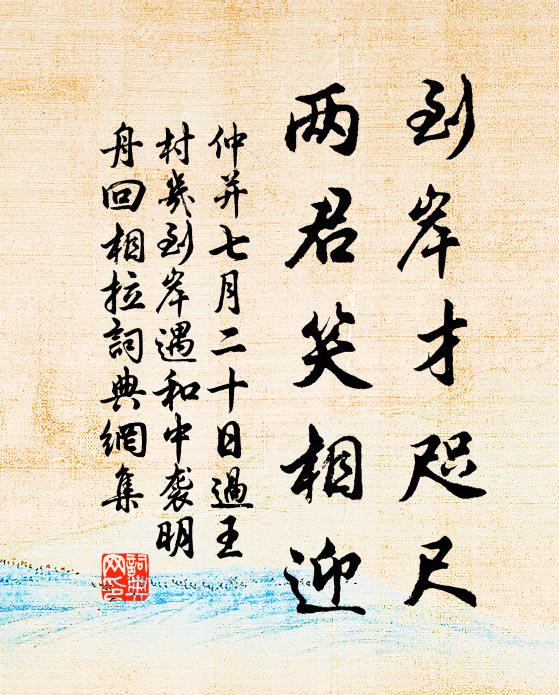 到岸才咫尺
两君笑相迎
仲并七月二十日過王
村幾到岸遇和中袭明
舟回相拉詞典網集
詞典